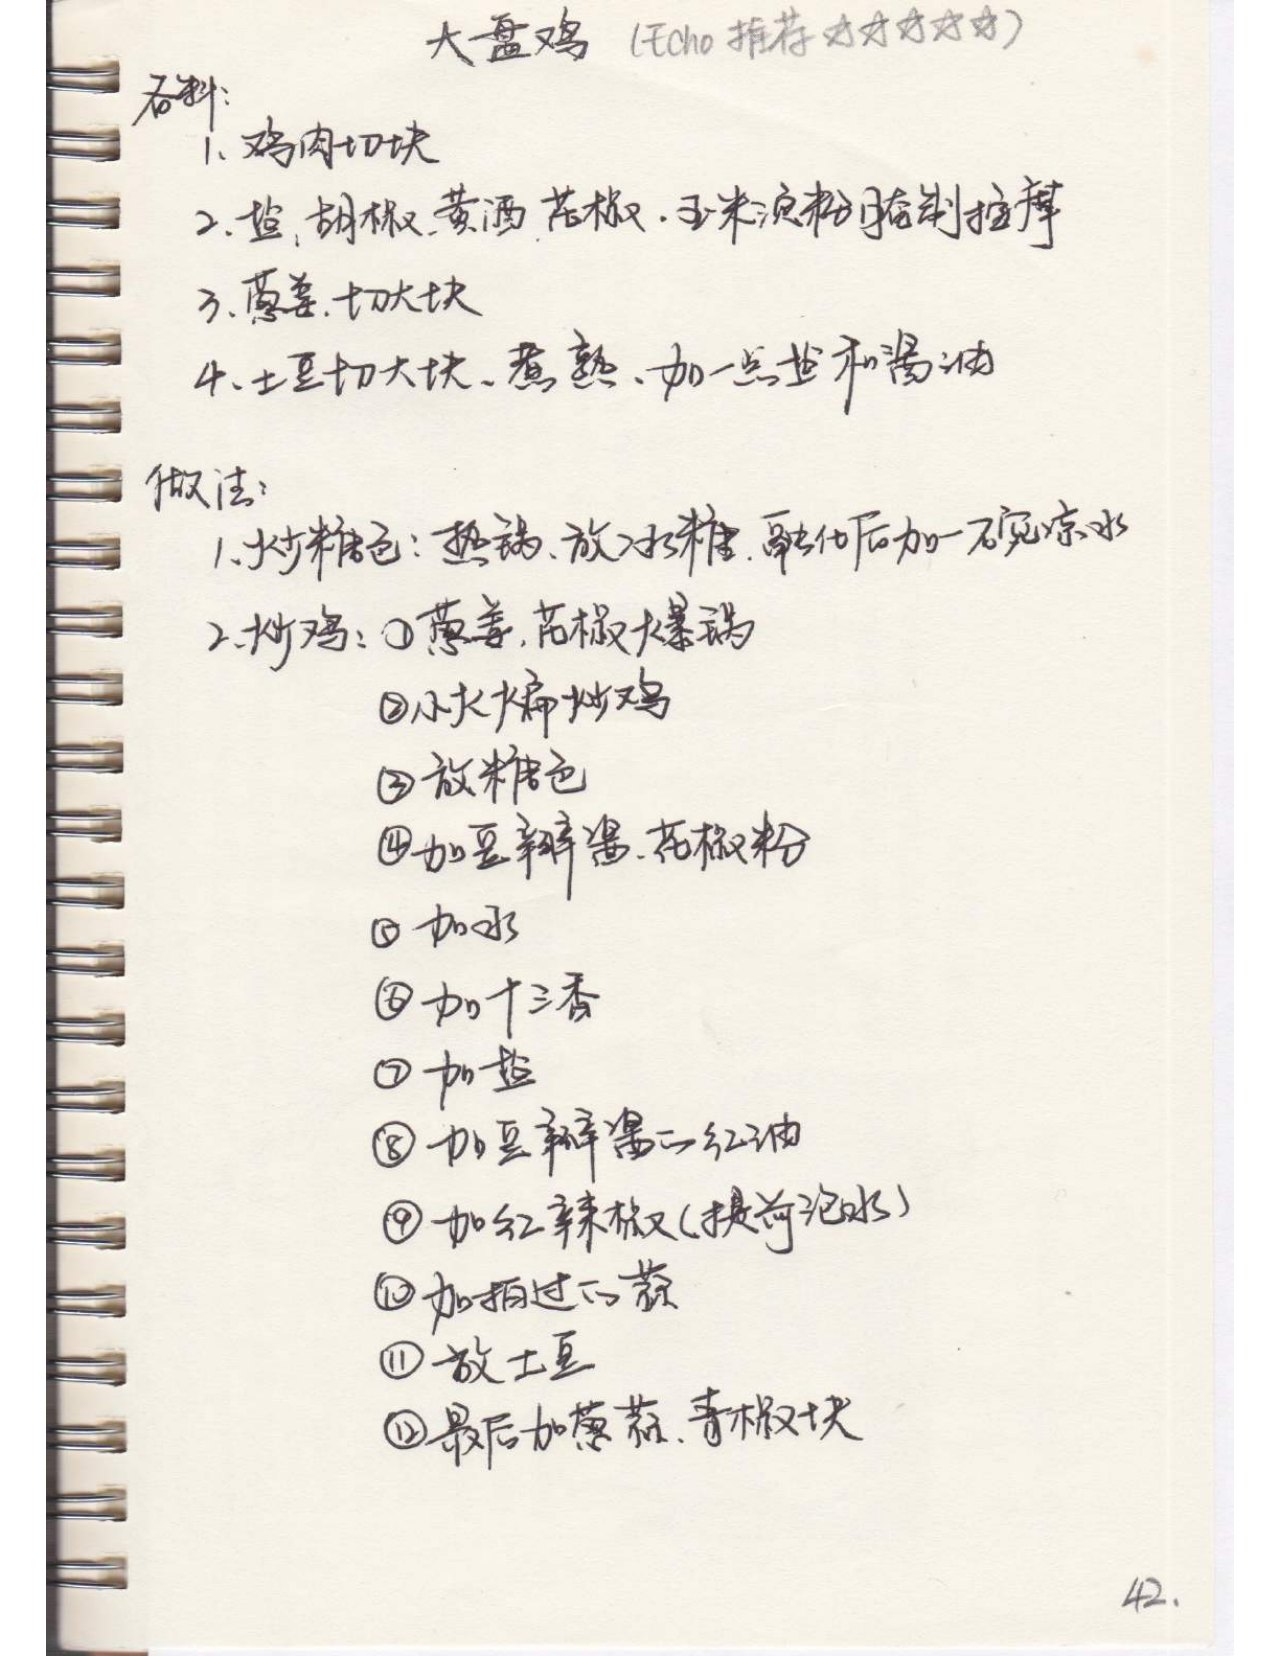 大盘鸡 (Echo 推荐 ☆☆☆☆☆)
备料:
1、鸡肉切块
2、盐、胡椒、黄酒、花椒、玉米淀粉腌制按摩
3、葱姜、切大块
4、土豆切大块、煮熟、加一点盐和酱油
做法:
1、炒糖色: 热锅、放冰糖、融化后加一碗凉水
2、炒鸡: ①葱姜、花椒大爆锅
②小火煸炒鸡
③放糖色
④加豆瓣酱、花椒粉
⑤加水
⑥加十三香
⑦加盐
⑧加豆瓣酱的红油
⑨加红辣椒(提前泡水)
⑩加拍过的蒜
⑪放土豆
⑫最后加葱蒜、青椒块
42.